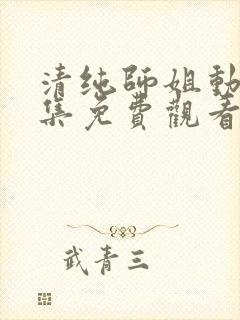 清纯師姐動
集免費觀看
武青三